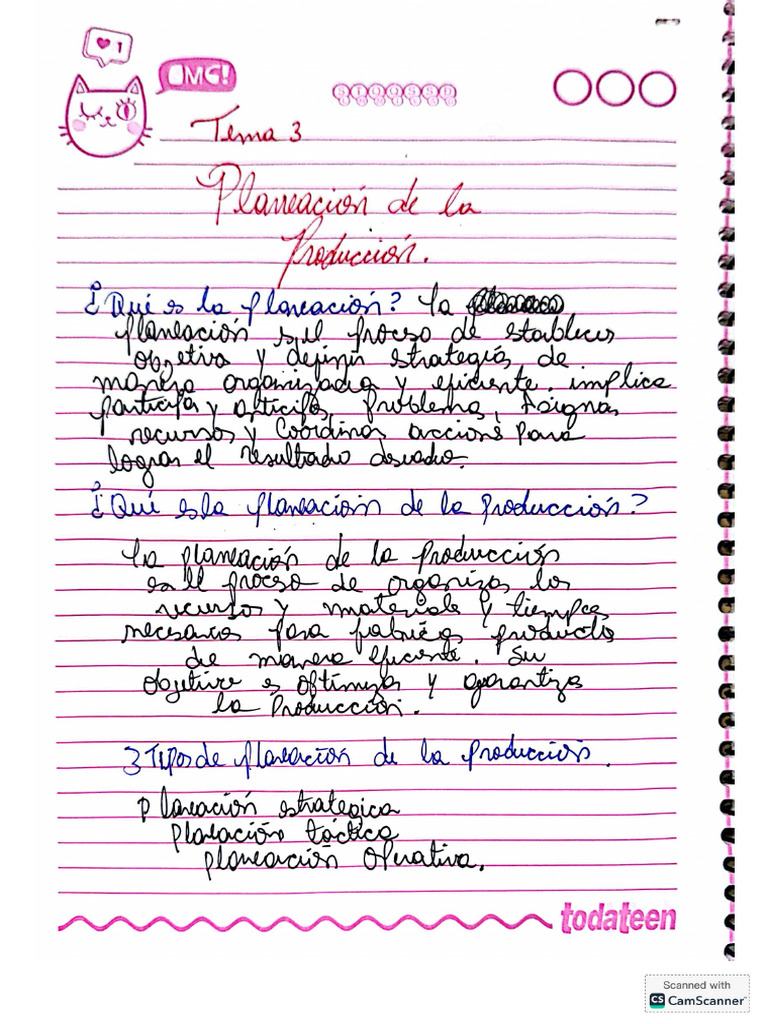 1
OMG!
S T Q Q S S D
Tema 3
Planeación de la
Producción.
¿Qué es la planeación? la
planeación es el proceso de establecer
objetivo y definir estrategias de
manera organizada y eficiente. implica
participa y anticipa, Problema, Asignar
recursos y Coordinar acciones para
lograr el resultado deseado.
¿Qué es la planeación de la Producción?
la planeación de la producción
es el proceso de organizar los
recursos y materiales y tiempos
necesarios para fabricar producto
de manera eficiente. Su
objetivo es optimizar y garantiza
la Producción.
3 Tipos de planeación de la producción.
planeación estrategica
planeación táctica
planeación Operativa.
todateen
Scanned with
CS CamScanner